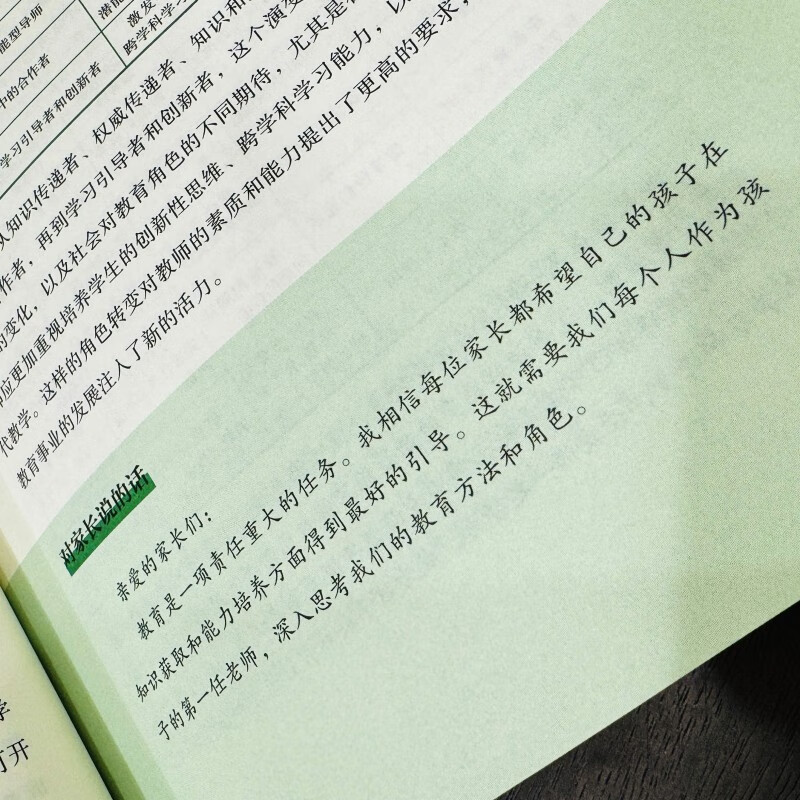 能型导师
潜能
激发
中的合作者
跨学科学
学习引导者和创新者
知识传递者、权威传递者、知识和
作者，再到学习引导者和创新者，这个演变
的变化，以及社会对教育角色的不同期待，尤其是
应更加重视培养学生的创新性思维、跨学科学习能力，以
代教学。这样的角色转变对教师的素质和能力提出了更高的要求，
教育事业的发展注入了新的活力。
对家长说的话
亲爱的家长们：
教育是一项责任重大的任务。我相信每位家长都希望自己的孩子在
知识获取和能力培养方面得到最好的引导。这就需要我们每个人作为孩
子的第一任老师，深入思考我们的教育方法和角色。
打开